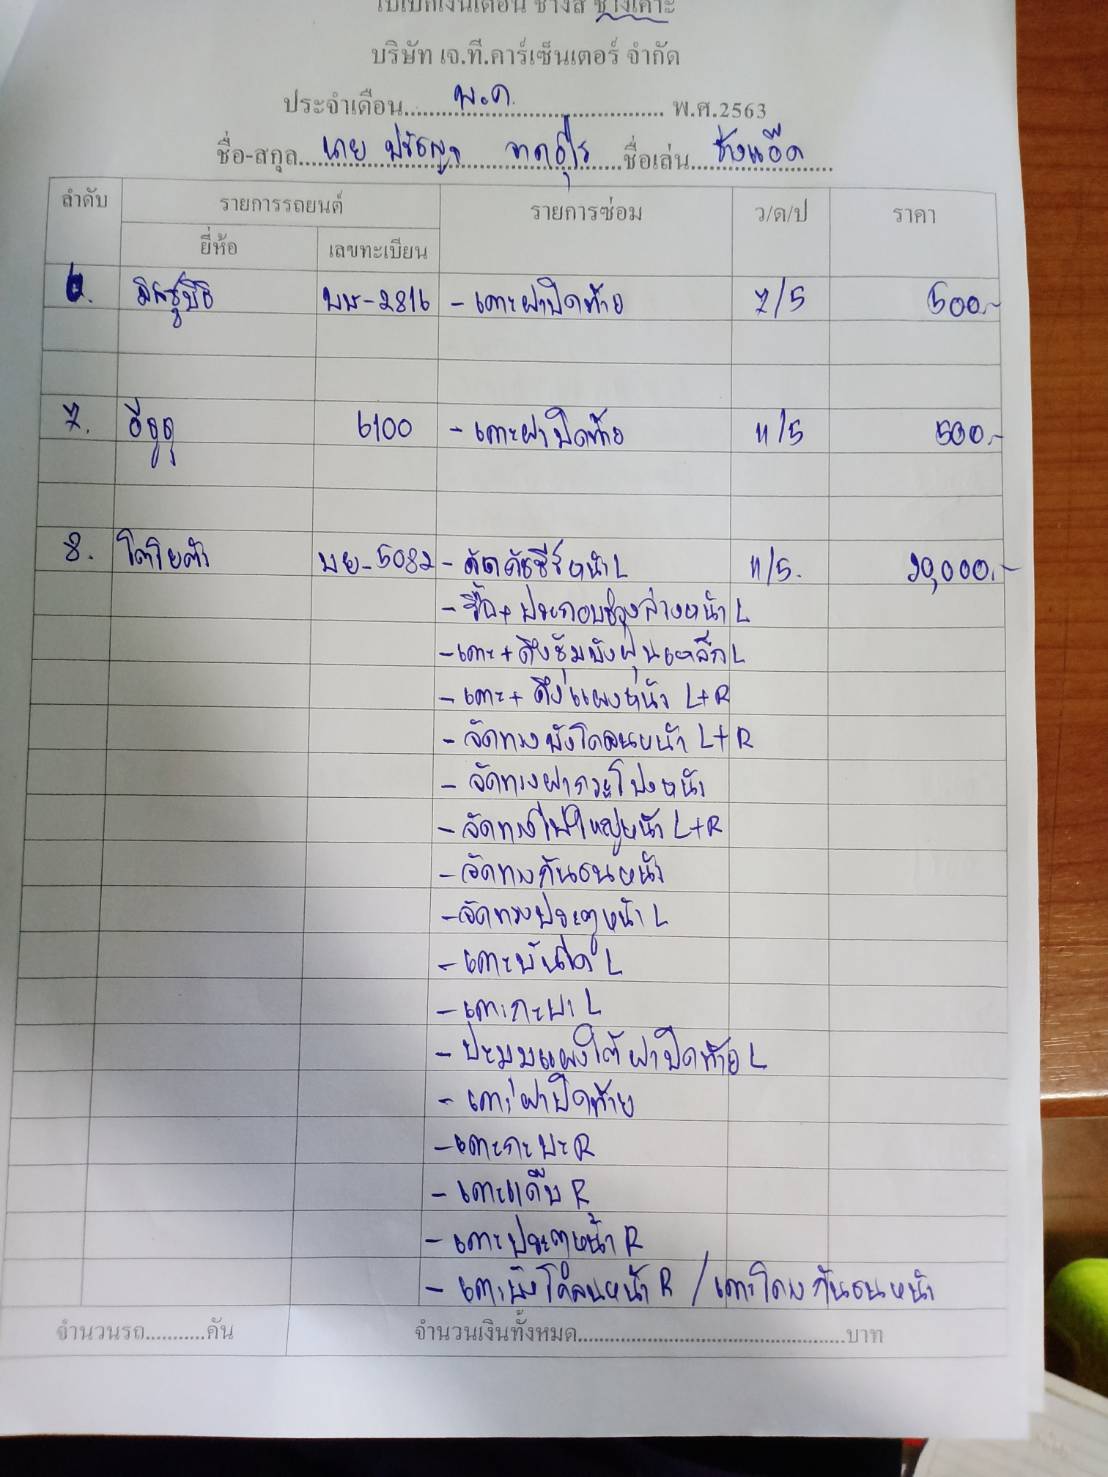 ใบเบิกเงินเดือน ช่างสี ช่างเคาะ
บริษัท เจ.ที.คาร์เซ็นเตอร์ จำกัด
ประจำเดือน.....พ.ค......พ.ศ.2563
ชื่อ-สกุล...นาย ปรัชญา ...ชื่อเล่น...ช่างแอ๊ด...
ลำดับ รายการรถยนต์ รายการซ่อม ว/ด/ป ราคา
ยี่ห้อ เลขทะเบียน
6. มิตซูบิชิ บษ-2816 - เคาะฝาปิดท้าย 7/5 500.-
7. อีซูซุ 6100 - เคาะฝาปิดท้าย 11/5 500.-
8. โตโยต้า บย-5082 - ดัดคัชซีร์หน้า L 11/5. 20,000.-
- รื้อ+ประกอบช่วงล่างหน้า L
- เคาะ+ดึงซุ้มบังฝุ่นเหล็ก L
- เคาะ+ดึงแผงหน้า L+R
- จัดทรงบังโคลนหน้า L+R
- จัดทรงฝากระโปรงหน้า
- จัดทรงไฟใหญ่หน้า L+R
- จัดทรงกันชนหน้า
- จัดทรงประตูหน้า L
- เคาะบันได L
- เคาะกะบะ L
- ประสมแผงใต้ฝาปิดท้าย L
- เคาะฝาปิดท้าย
- เคาะกะบะ R
- เคาะแค๊บ R
- เคาะประตูหน้า R
- เคาะบังโคลนหน้า R / เคาะโครงกันชนหน้า
จำนวนรถ...........คัน จำนวนเงินทั้งหมด..........บาท